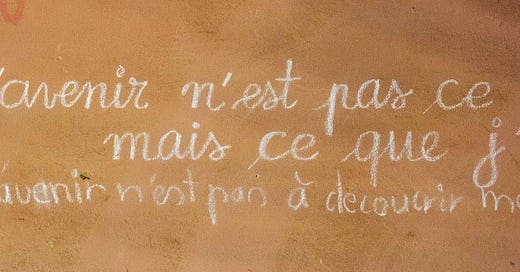 'avenir n'est pas ce
mais ce que j'
avenir n'est pas à decouvrir